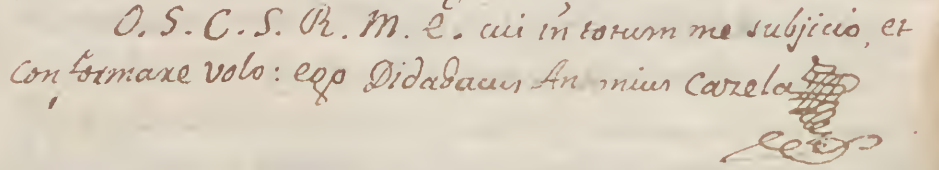 O. S. C. S. R. M. E. cui in totum me subjicio, et
conformare volo: ego Didadacus Antonius Carela